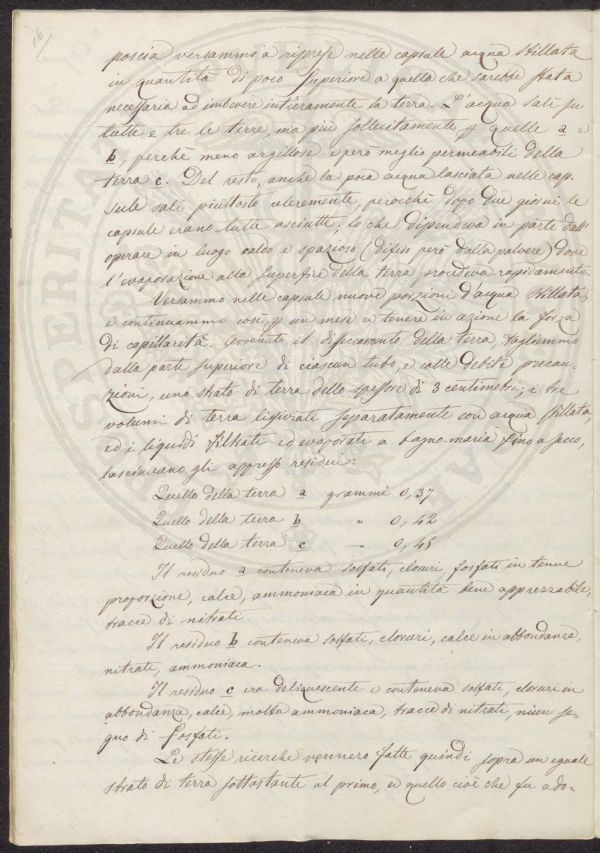 16/
poscia versammo a riprese nelle capsule acqua stillata
in quantità di poco superiore a quella che sarebbe stata
necessaria ad imbevere intieramente la terra. L'acqua salì su
tutte e tre le terre, ma più sollecitamente p quelle a e
b, perchè meno argillose e però meglio permeabili della
terra c. Del resto, anche la poca acqua lasciata nelle cap-
sule salì piuttosto celeremente, perocchè dopo due giorni le
capsule erano tutte asciutte; lo che dipendeva in parte dall'
operare in luogo caldo e spazioso (difeso però dalla polvere) dove
l'evaporazione alla superficie della terra procedeva rapidamente.
Versammo nelle capsule nuove porzioni d'acqua stillata,
e continuammo così p un mese a tenere in azione la forza
di capillarità. Avvenuto il disseccamento della terra, togliemmo
dalla parte superiore di ciascun tubo, e colle debite precau-
zioni, uno strato di terra dello spessore di 3 centimetri; i tre
volumi di terra lisciviati separatamente con acqua stillata,
ed i liquidi filtrati ed evaporati a bagno-maria fino a secco,
lasciavano gli appresso residui:
Quello della terra a grammi 0,37
Quello della terra b " 0,42
Quello della terra c " 0,45
Il residuo a conteneva solfati, cloruri, fosfati in tenue
proporzione, calce, ammoniaca in quantità bene apprezzabile,
tracce di nitrati.
Il residuo b conteneva solfati, cloruri, calce in abbondanza,
nitrati, ammoniaca.
Il residuo c era deliquescente e conteneva solfati, cloruri in
abbondanza, calce, molta ammoniaca, tracce di nitrati, niun se-
gno di fosfati.
Le stesse ricerche vennero fatte quindi sopra un eguale
strato di terra sottostante al primo, e quello cioè che fu ado-